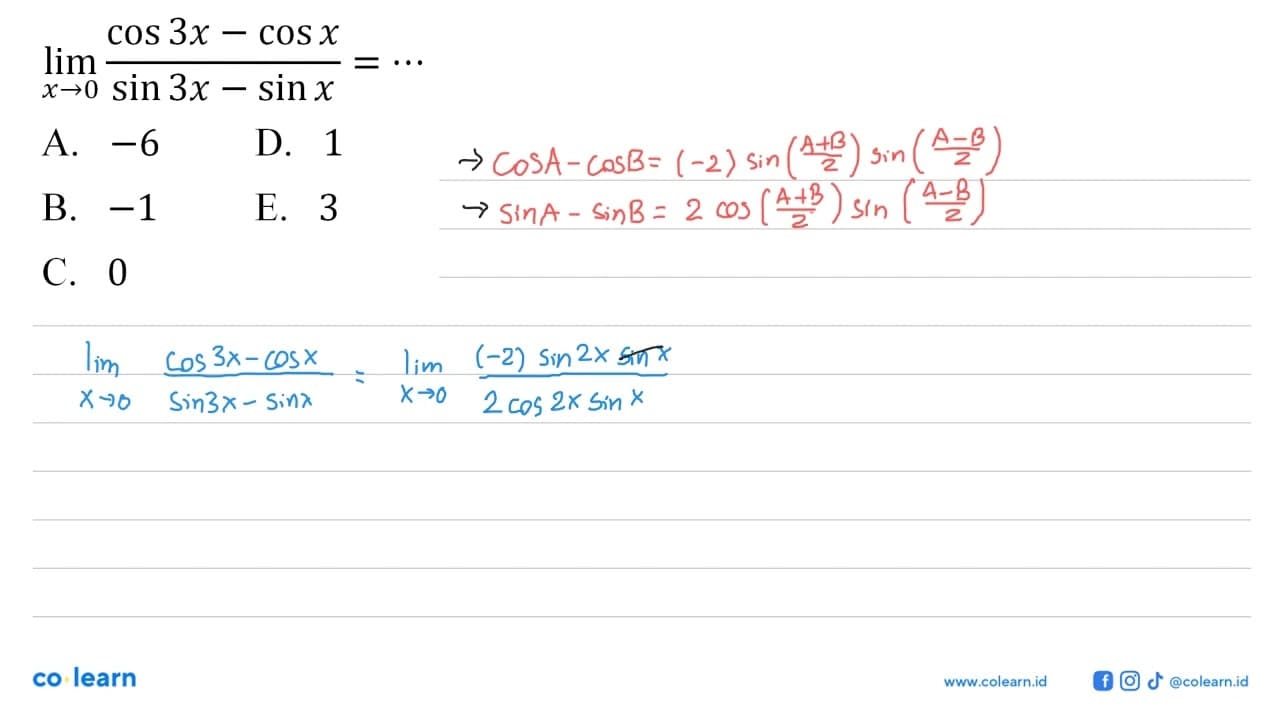 lim x→0 (cos 3x − cos x)/(sin 3x − sin x) = ⋯
A. −6 D. 1
B. −1 E. 3
C. 0
→ CosA − CosB = (−2) sin((A+B)/2) sin((A−B)/2)
→ SinA − SinB = 2 cos((A+B)/2) sin((A−B)/2)
lim x→0 (cos 3x − cos x)/(sin 3x − sin x) = lim x→0 ((−2) sin 2x sin x)/(2 cos 2x sin x)
co learn
www.colearn.id @colearn.id